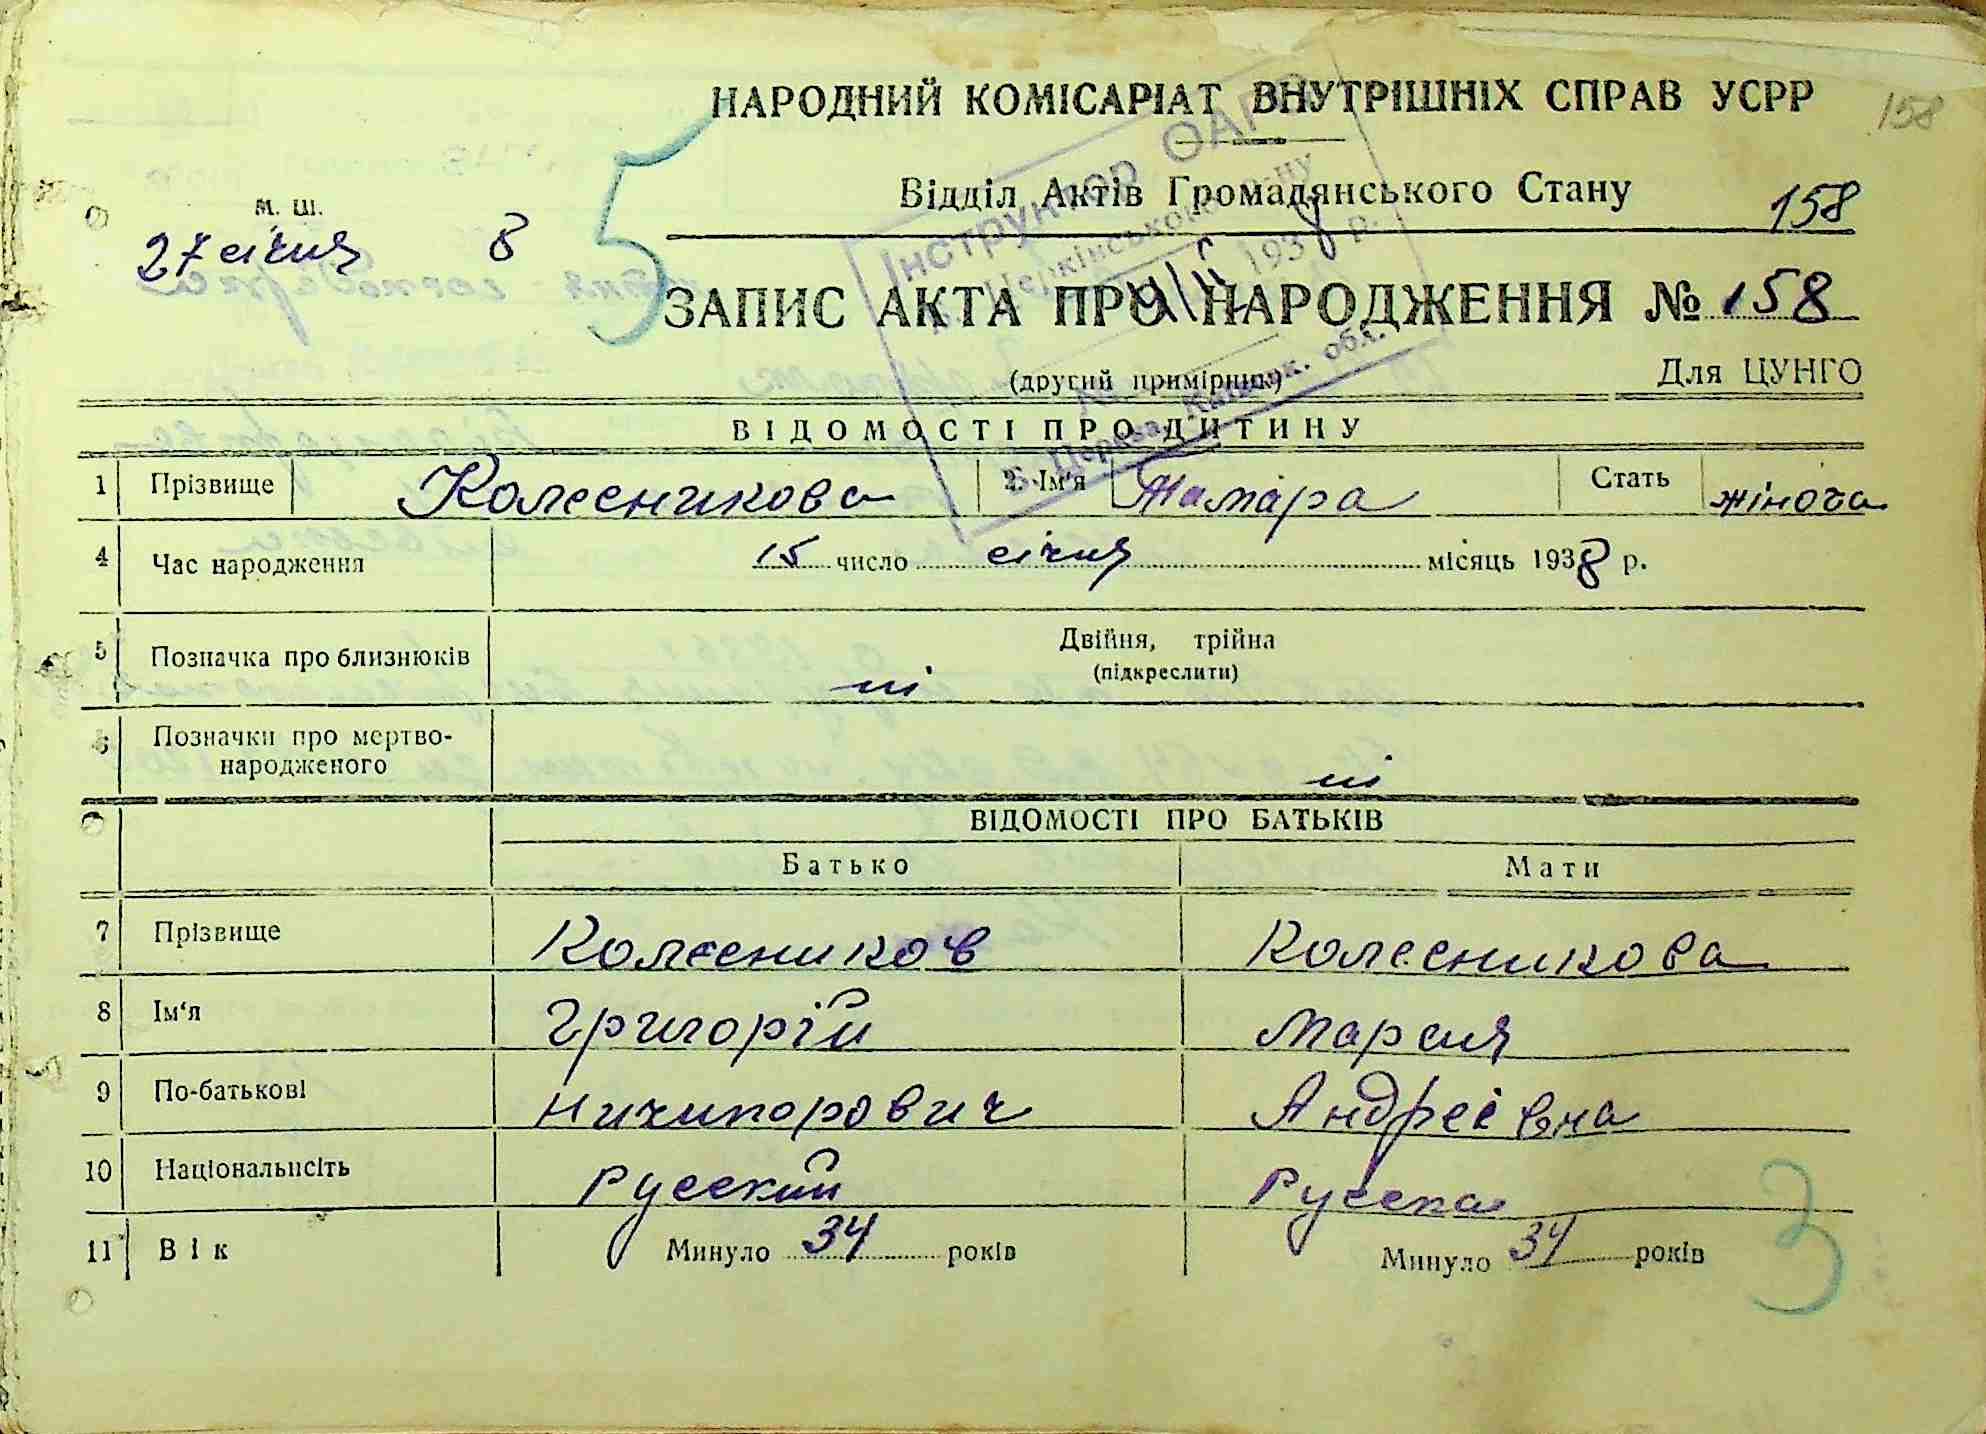 НАРОДНИЙ КОМІСАРІАТ ВНУТРІШНІХ СПРАВ УСРР
158
Відділ Актів Громадянського Стану
158
М. Ш.
27 січня 8
5
Інструктор ОАГС
193 р.
ЗАПИС АКТА ПРО НАРОДЖЕННЯ № 158
(другий примірник)
Для ЦУНГО
Б. Церква, Київськ. обл.
ВІДОМОСТІ ПРО ДИТИНУ
1 Прізвище Колесникова 2 Ім'я Тамара Стать жіноча
4 Час народження 15 число січня місяць 1938 р.
5 Позначка про близнюків Двійня, трійна
(підкреслити)
ні
6 Позначки про мертво-
народженого ні
ВІДОМОСТІ ПРО БАТЬКІВ
Батько Мати
7 Прізвище Колесников Колесникова
8 Ім'я Григорій Мария
9 По-батькові Ничипорович Андреівна
10 Національність Русский Русска
11 Вік Минуло 34 років Минуло 34 років
3